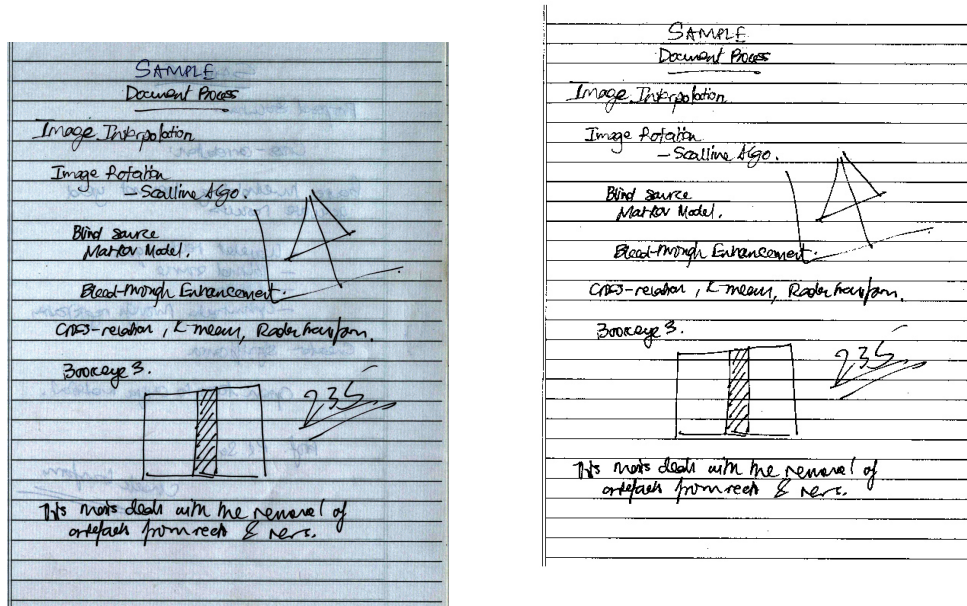 SAMPLE
Document Process
Image Interpolation
Image Rotation
– Scalline Algo.
Blind source
Markov Model.
Bleed-through Enhancement.
Cross-relation, K-mean, Radon transform.
Bookeye 3.
235
This deals with the removal of
artefacts from &
SAMPLE
Document Process
Image Interpolation
Image Rotation
– Scalline Algo.
Blind source
Markov Model.
Bleed-through Enhancement.
Cross-relation, K-mean, Radon transform.
Bookeye 3.
235
This deals with the removal of
artefacts from &